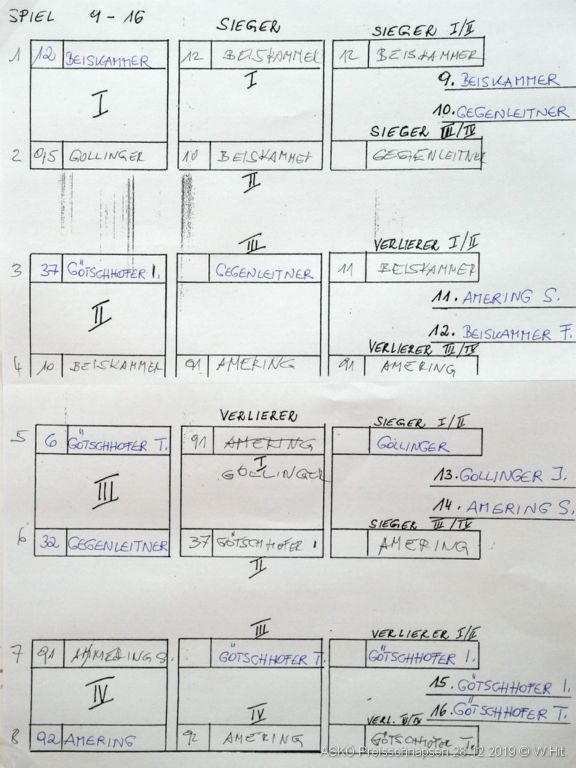 SPIEL 9 - 16
SIEGER
SIEGER I/II
1 12 BEISKAMMER 12 BEISKAMMER 12 BEISKAMMER
I I
9. BEISKAMMER
10. GEGENLEITNER
SIEGER III/IV
2 95 GOLLINGER 10 BEISKAMMER GEGENLEITNER
II
III VERLIERER I/II
3 37 GÖTSCHHOFER I. GEGENLEITNER 11 BEISKAMMER
II
11. AMERING S.
12. BEISKAMMER F.
VERLIERER III/IV
4 10 BEISKAMMER 91 AMERING 91 AMERING
VERLIERER SIEGER I/II
5 6 GÖTSCHHOFER T. 91 AMERING GÖLLINGER
I
GOLLINGER
III
13. GOLLINGER J.
14. AMERING S.
SIEGER III/IV
6 32 GEGENLEITNER 37 GÖTSCHHOFER I AMERING
II
III VERLIERER I/II
7 91 AMERING S. GÖTSCHHOFER T. GÖTSCHHOFER I.
IV
15. GÖTSCHHOFER I.
16. GÖTSCHHOFER T.
IV VERL. III/IV
8 92 AMERING 92 AMERING GÖTSCHHOFER T.
ASKÖ Preisschnapsen 28.12.2019 © W.Hit